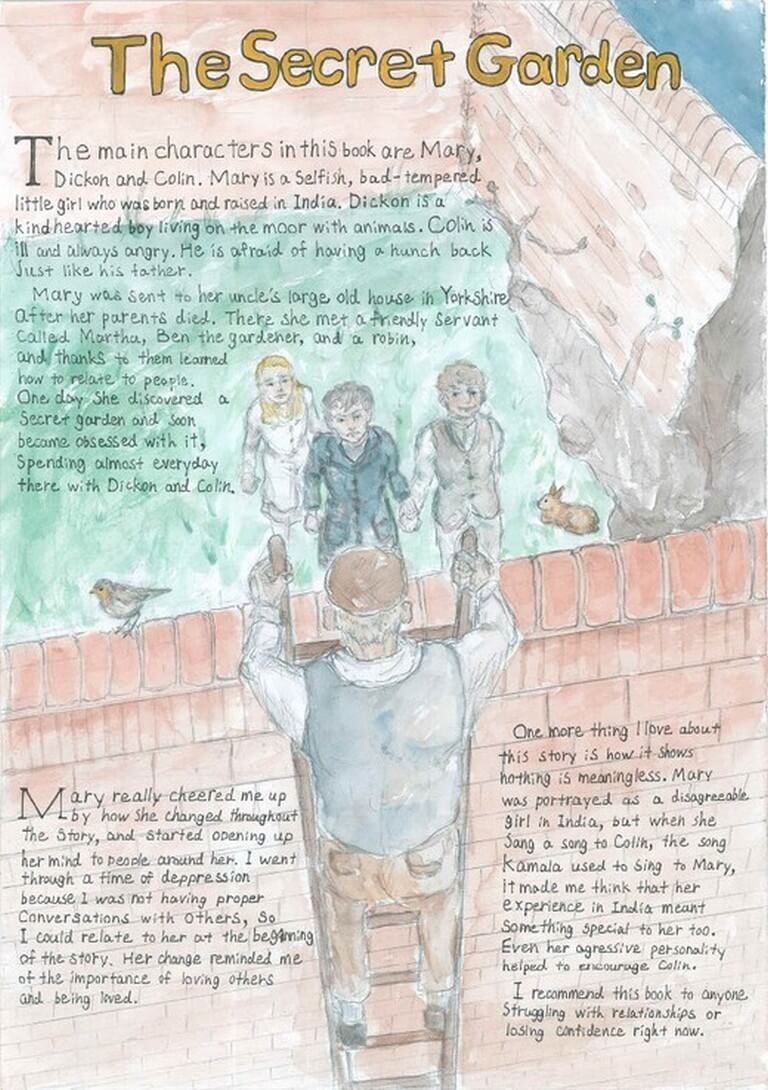 The Secret Garden
The main characters in this book are Mary,
Dickon and Colin. Mary is a Selfish, bad-tempered
little girl who was born and raised in India. Dickon is a
kindhearted boy living on the moor with animals. Colin is
ill and always angry. He is afraid of having a hunch back
Just like his father.
Mary was sent to her uncle's large old house in Yorkshire
After her parents died. There she met a friendly servant
Called Martha, Ben the gardener, and a robin,
and thanks to them learned
how to relate to people.
One day she discovered a
Secret garden and soon
became obsessed with it,
Spending almost everyday
there with Dickon and Colin.
Mary really cheered me up
by how she changed throughout
the story, and started opening up
her mind to people around her. I went
through a time of deppression
because I was not having proper
Conversations with others, So
I could relate to her at the beginning
of the story. Her change reminded me
of the importance of loving others
and being loved.
One more thing I love about
this story is how it shows
nothing is meaningless. Mary
was portrayed as a disagreeable
girl in India, but when she
Sang a song to Colin, the song
Kamala used to sing to Mary,
it made me think that her
experience in India meant
Something special to her too.
Even her agressive personality
helped to encourage Colin.
I recommend this book to anyone
Struggling with relationships or
losing confidence right now.